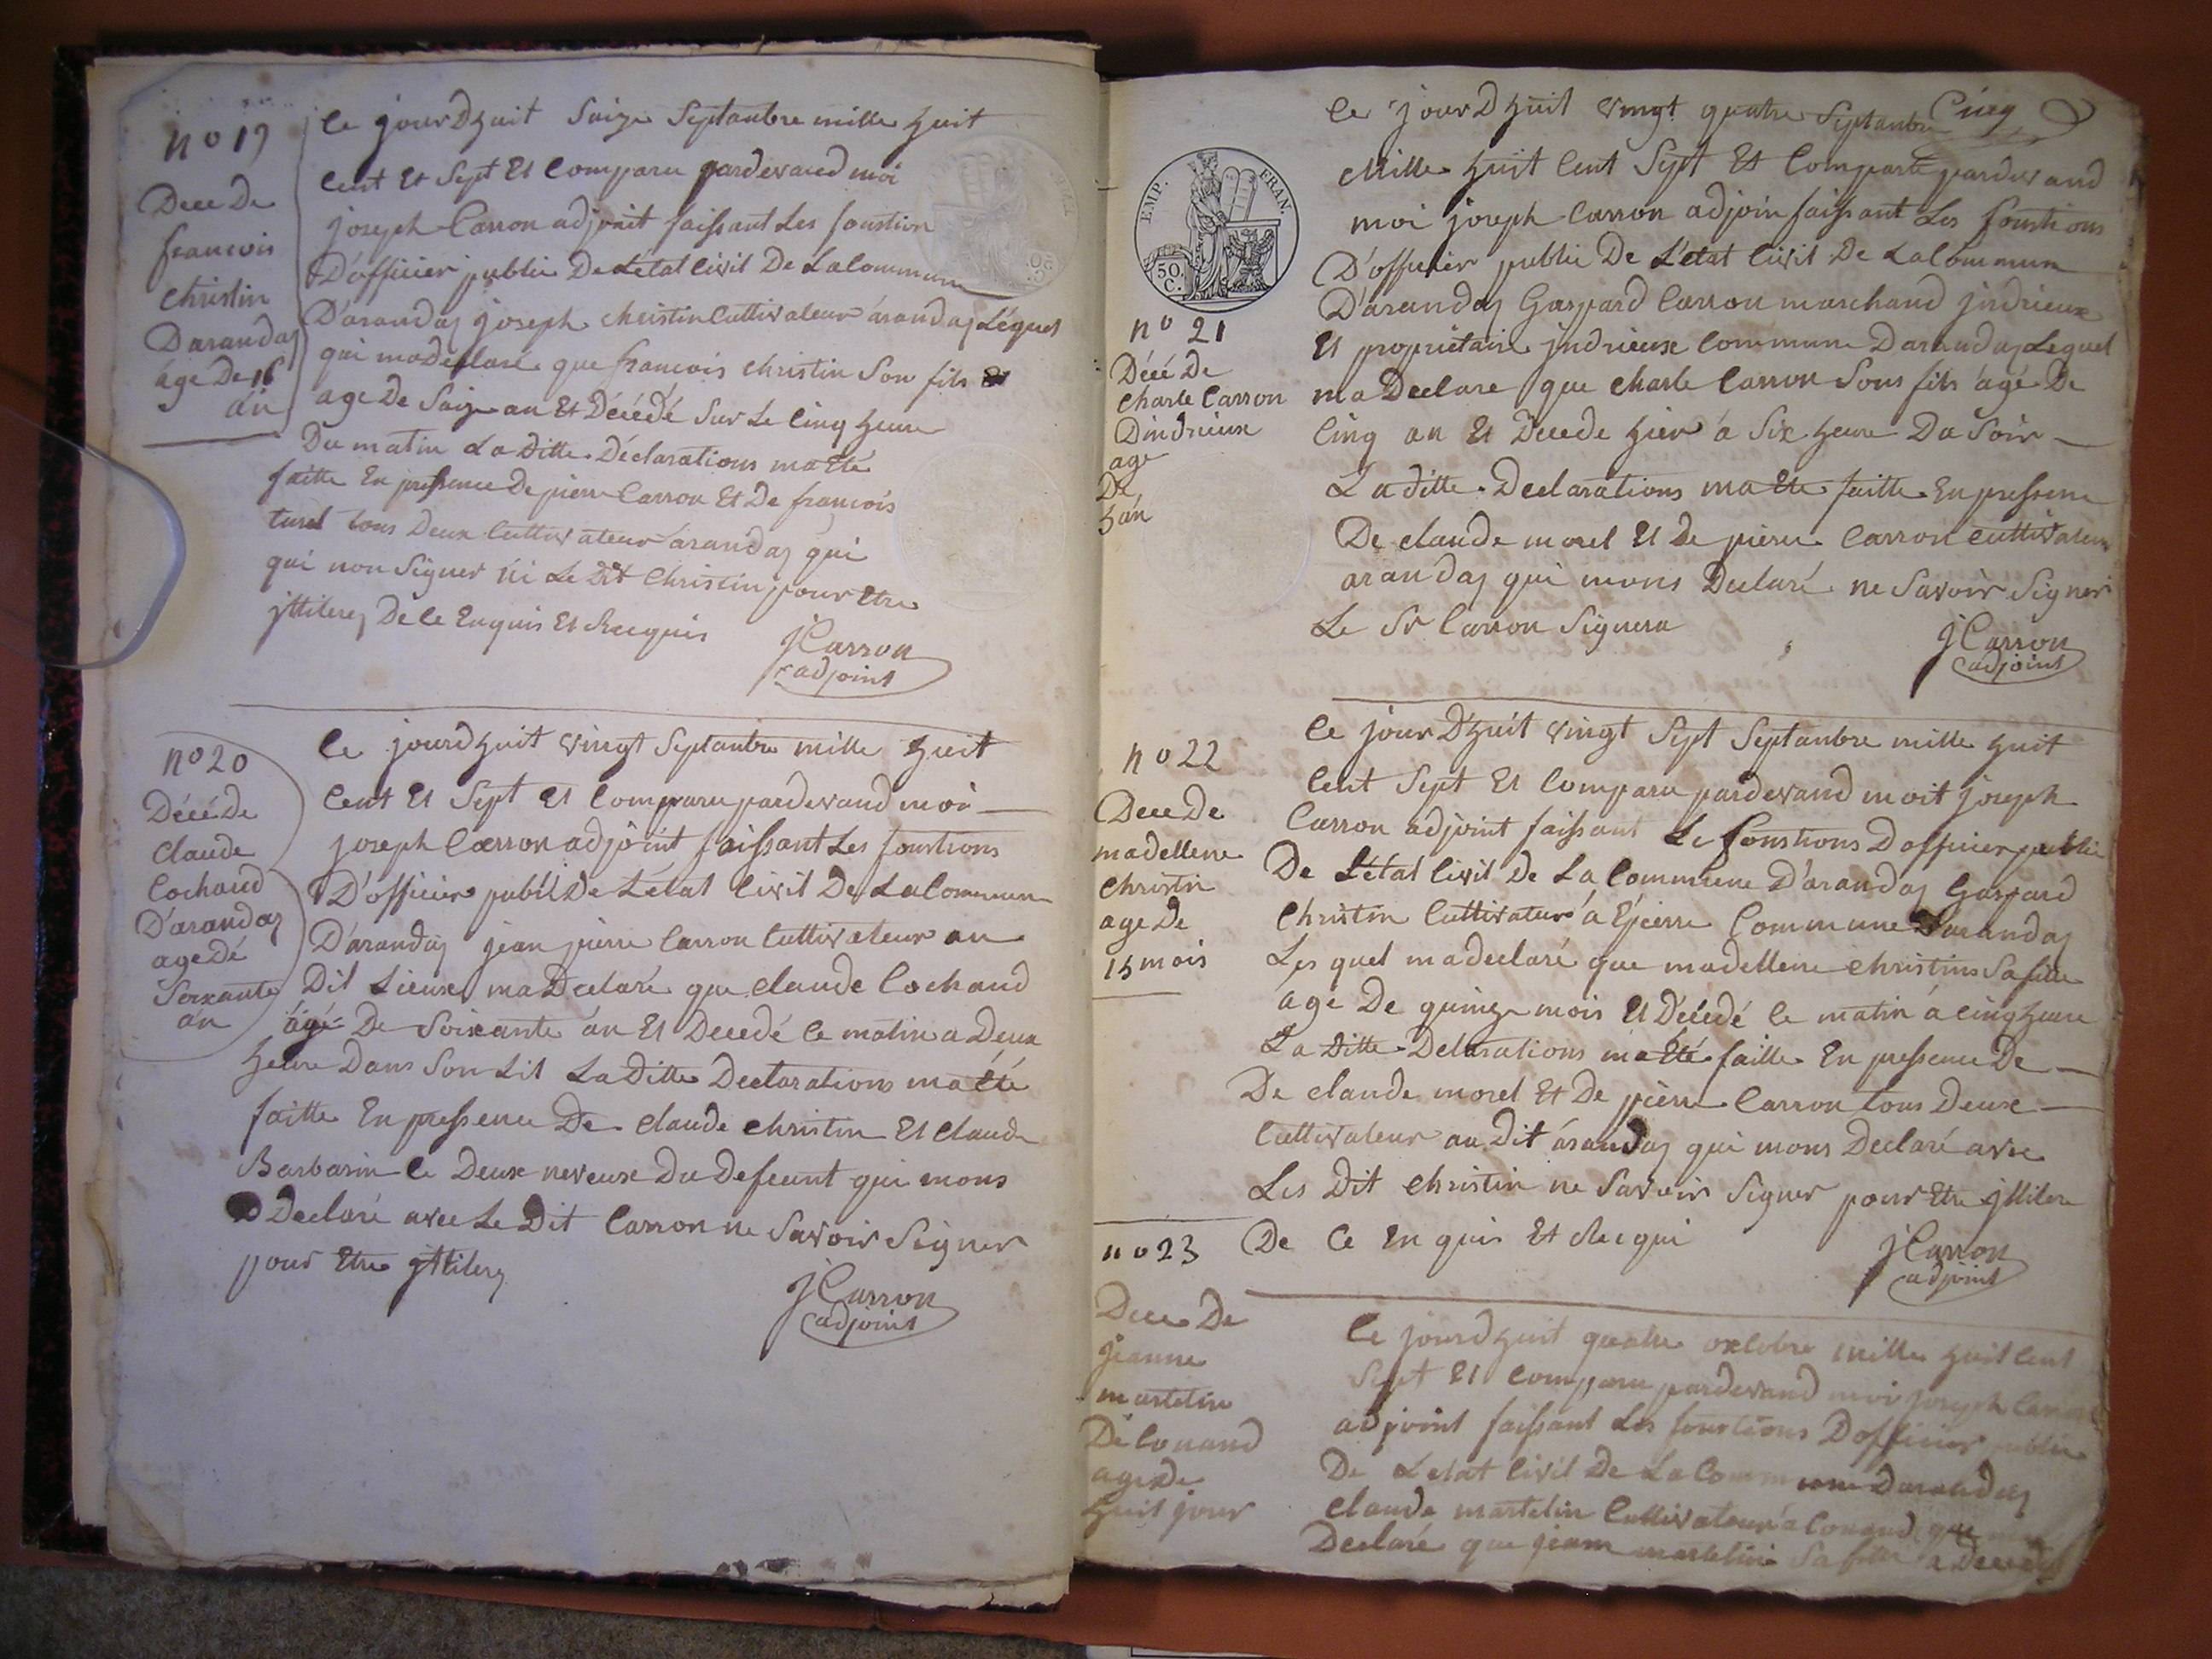 no 19
Decede
francois
christin
Darandas
age De 16
an
Ce jourDhuit Saize Septanbre mille huit
Cent Et Sept Et Comparu pardevand moi
joseph Carron adjoint faissant Les fonstion
D'officier public De Létat Civil De La Commune
D'arandas joseph christin Cultivateur árandas Léquel
qui madéclaré que francois christin Son fils
age De Saize an Et Décédé Sur Le Cinq heure
Du matin La ditte Déclarations maEté
faitte En pressence De pierre Carron Et De francois
turel tous Deux Cultivateur árandas qui
qui non Signer Ni Le Dit Christin pour Etre
jttileres De Ce Enquis Et Requis
JCarron
adjoint
no 20
Décéde
Claude
Cochaud
D'arandas
age dé
Soixante
án
Ce jourdhuit vingt Septanbre mille huit
Cent Et Sept Et Comparu pardevand moi
joseph Carron adjoint faissant Les fonstions
D'officier publi De Létat Civil De La Commune
D'arandas jean pierre Carron Cultivateur au
Dit Lieux ma Declaré que claude Cochaud
ágé De Soixante án Et Decedé Ce matin a Deux
heure Dans Son Lit La Ditte Declarations ma été
faitte En pressence De claude christin Et claude
Barbarin Ce Deux neveux Du defeunt qui mons
Declaré avec Le Dit Carron ne Savoir Signer
pour Etre jttileres
JCarron
adjoint
Cinq
EMP. FRAN.
50. C.
no 21
Décé De
Charle Carron
Dindrieux
age
De
5 án
Ce jourDhuit vingt quatre Septanbre
Mille huit Cent Sept Et Comparu pardevand
moi joseph Carron adjoin faissant Les fonstions
D'officier public De L'état Civil De La Commune
D'arandas Gaspard Carron marchand jndrieux
Et propriétaire jndrieux Commune Darandas Lequel
ma Declare que Charle Carron Sons fils ágé De
Cinq an Et Decede hier á Six heure Du Soir
La ditte Declarations ma Eté faitte En pressence
De claude morel Et De pierre Carron Cultivateur
arandas qui mons Declaré ne Savoir Signer
Le Sr Carron Signera
JCarron
adjoint
no 22
Decede
madellene
christin
age De
15 mois
Ce jourD'huit vingt Sept Septanbre mille huit
Cent Sept Et Comparu pardevand moit joseph
Carron adjoint faissant Le fonstions D officier public
De Létat Civil De La Commune D'arandas Gaspard
Christin Cultivature á Epierre Commune Darandas
Les quel madeclaré que madellene christins Sa fille
áge De quinze mois Et Décédé Ce matin á cinq heure
La Ditte Delarations ma Eté faitte En pressence De
De claude morel Et De pierre Carron tous Deux
Cultivateur au Dit árandas qui mons Declaré avec
Les Dit christin ne Savoir Signer pour Etre jttilere
De Ce En quis Et Requi
JCarron
adjoint
no 23
Decede
jeanne
martelin
De Conand
age de
huit jour
Ce jourdhuit quatre oxtobre mille huit Cent
Sept Et Comparu pardevand moi joseph Carron
adjoint faissant Les fonstions D officier public
De Létat Civil De La Commune Darandas
Claude martelin Cultivateur á Conand que
Declaré que jeann martelin Sa fille a Decedé